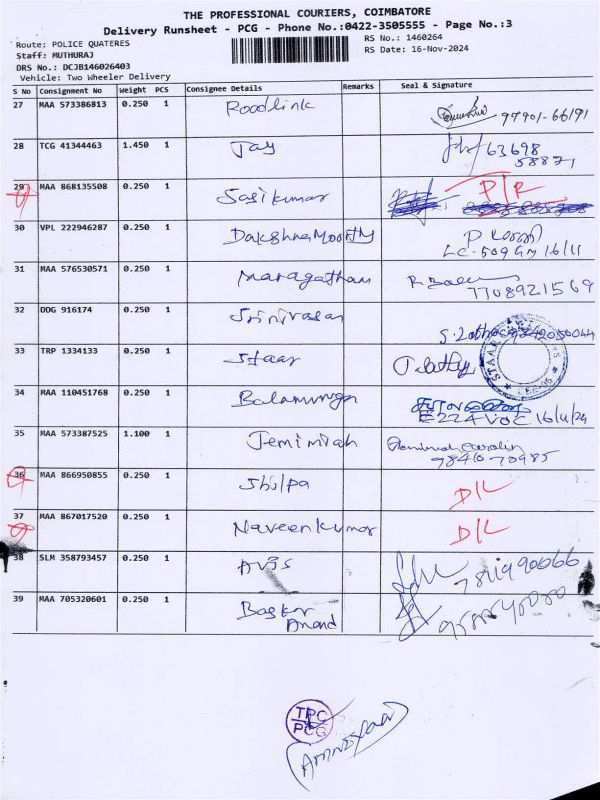 THE PROFESSIONAL COURIERS, COIMBATORE
Delivery Runsheet - PCG - Phone No.:0422-3505555 - Page No.:3
Route: POLICE QUATERES
RS No.: 1460264
Staff: MUTHURAJ
RS Date: 16-Nov-2024
DRS No.: DCJB146026403
Vehicle: Two Wheeler Delivery
S No Consignment No Weight PCS Consignee Details Remarks Seal & Signature
27 MAA 573386813 0.250 1 Roodlink 97901-66191
28 TCG 41344463 1.450 1 Jay 63698
58871
29 MAA 868135508 0.250 1 Sasikumar D/R
30 VPL 222946287 0.250 1 DakshnaMoorthy
LC-509 GM 16/11
31 MAA 576530571 0.250 1 Maragatham
7708921569
32 DDG 916174 0.250 1 Srinivasan
33 TRP 1334133 0.250 1 Staar
34 MAA 110451768 0.250 1 Balamurugan
35 MAA 573387525 1.100 1 Jemimiah
9840 70985
36 MAA 866950855 0.250 1 Shilpa D/L
37 MAA 867017520 0.250 1 Naveenkumar D/L
38 SLM 358793457 0.250 1 Avis
39 MAA 705320601 0.250 1 Baskar
Anand
TPC
PCG